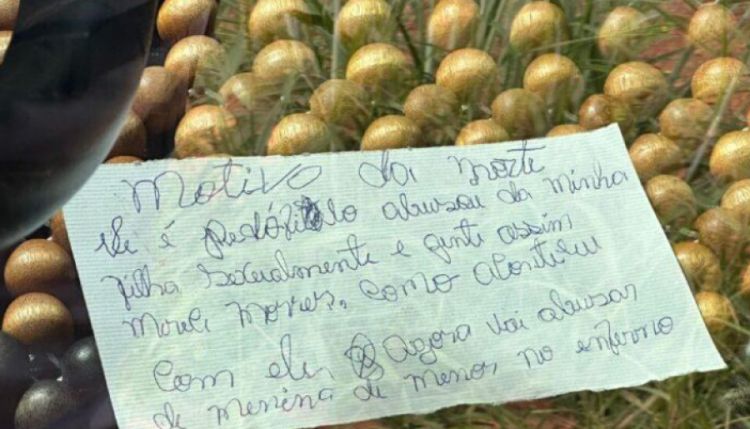 Motivo da morte
ele é pedófilo abusou da minha
filha sexualmente e gente assim
morre como aconteceu
com ele agora vai abusar
de menina de menor no inferno